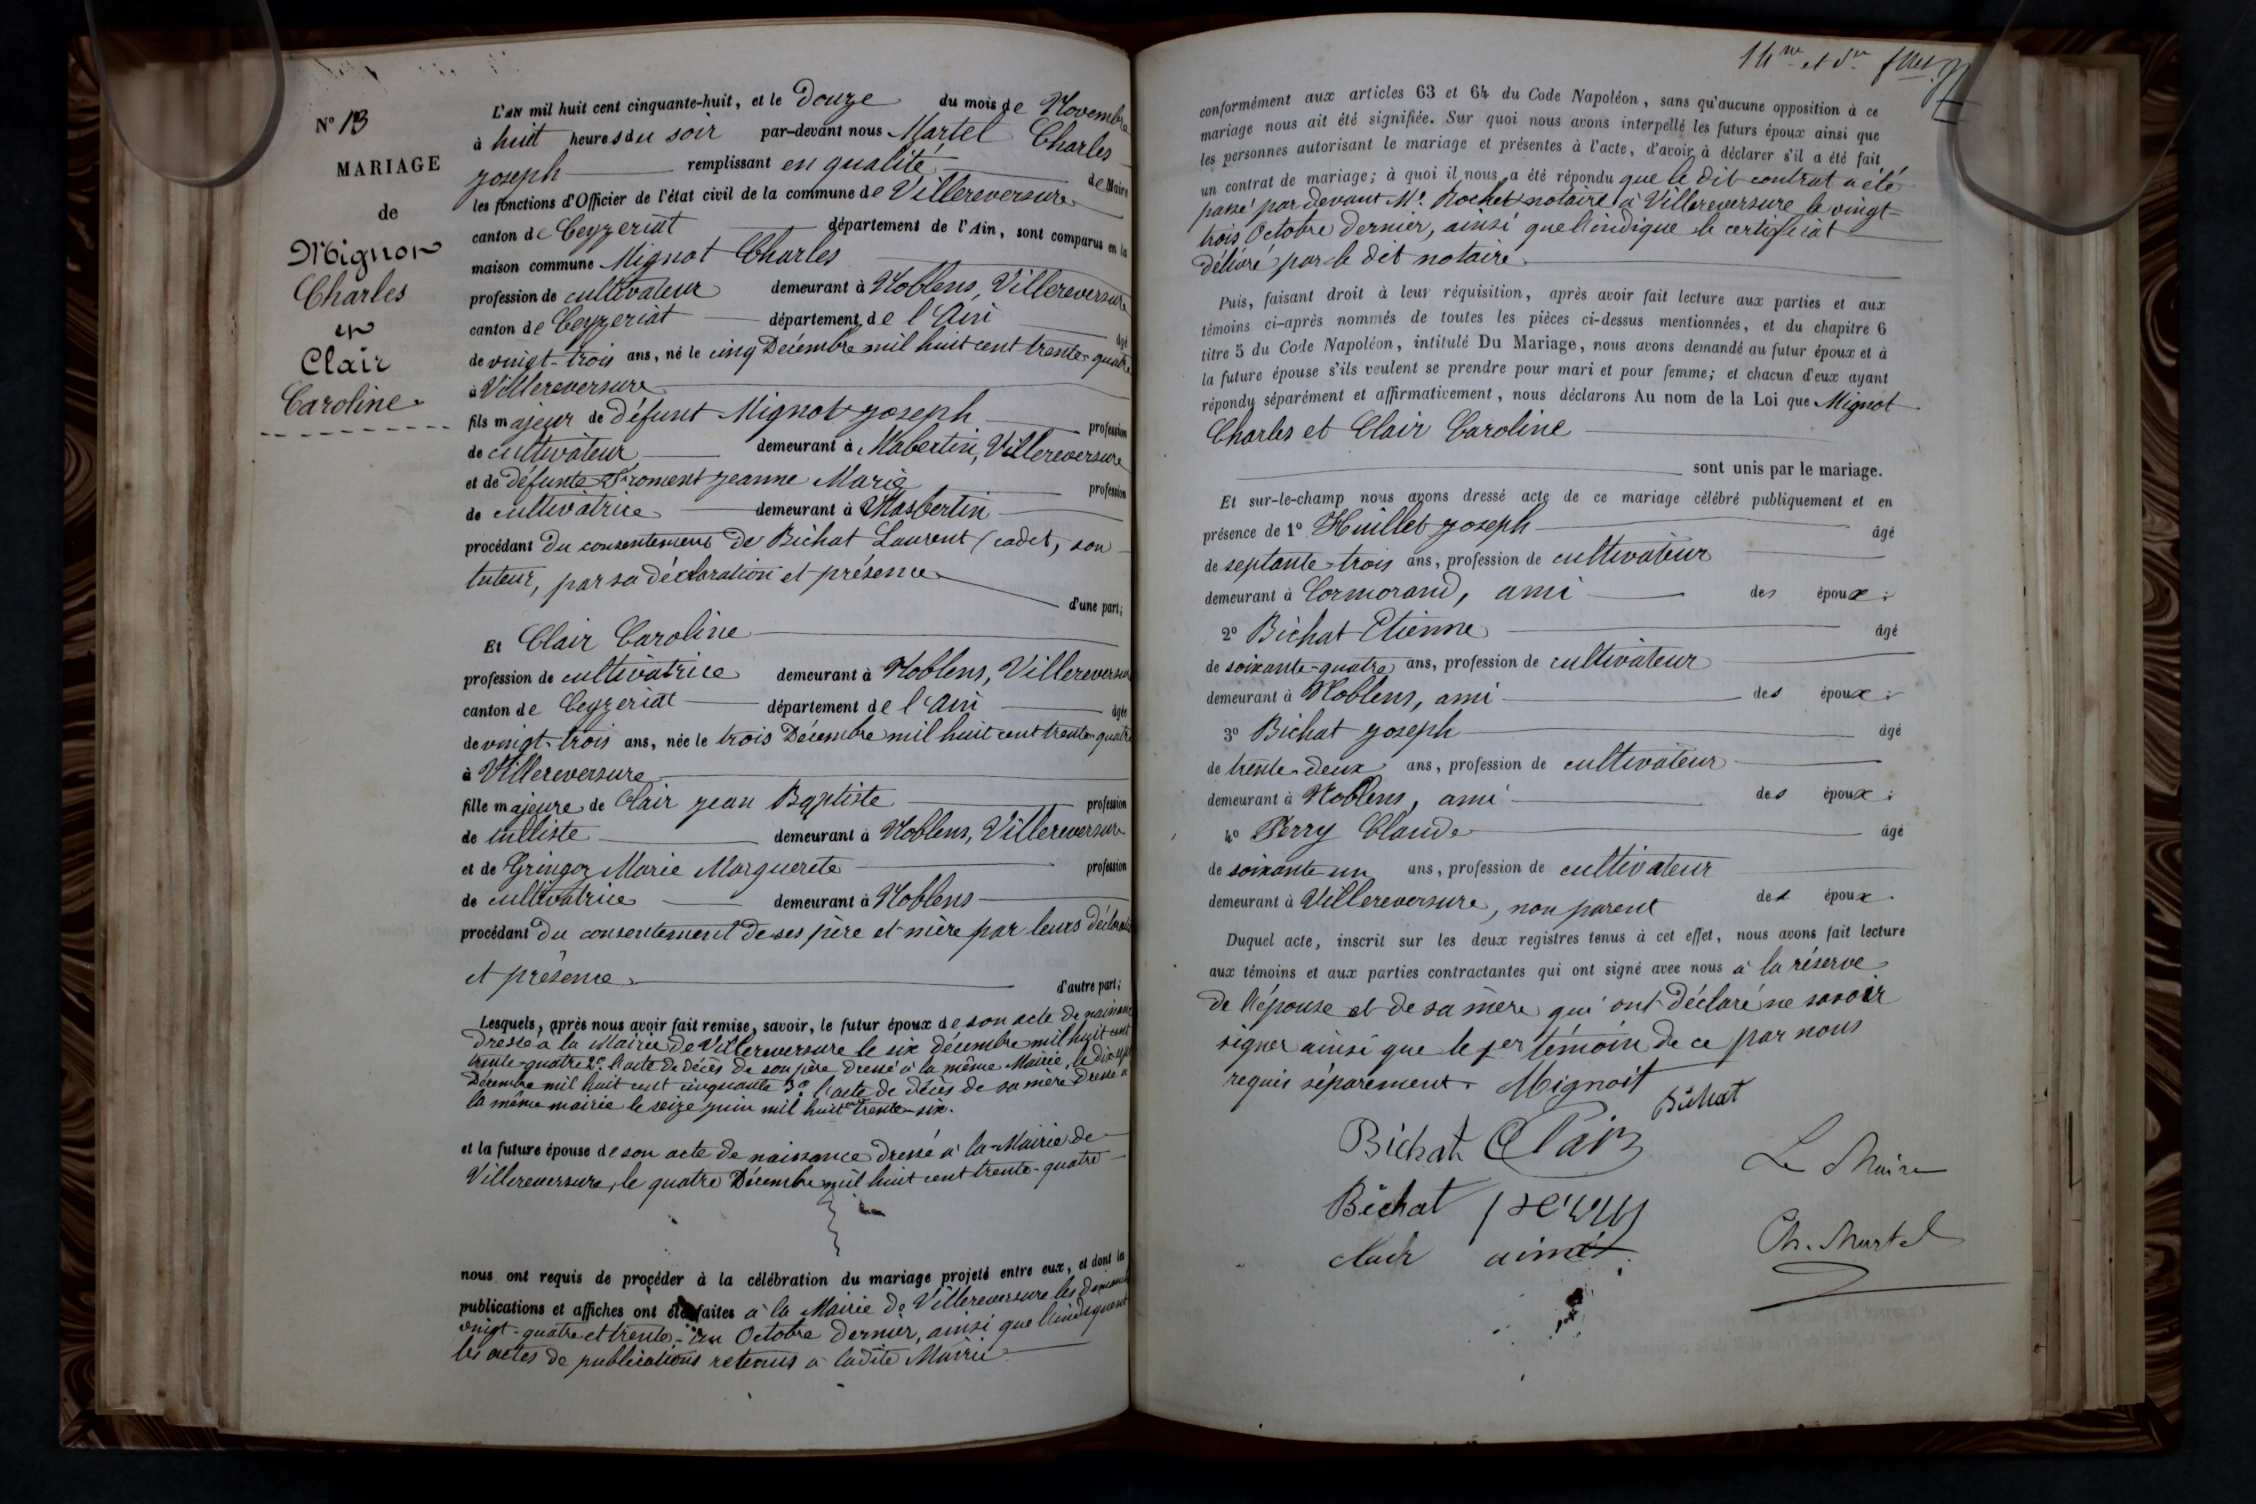 N° 13
MARIAGE
de
Mignon
Charles
et
Clair
Caroline
L'AN mil huit cent cinquante-huit, et le Douze du mois de Novembre
à huit heures du soir par-devant nous Martel Charles
joseph remplissant en qualité de Maire
les fonctions d'Officier de l'état civil de la commune de Villereversure
canton de Ceyzeriat département de l'Ain, sont comparus en la
maison commune Mignot Charles
profession de cultivateur demeurant à Noblens, Villereversure
canton de Ceyzeriat département de l'Ain âgé
de vingt-trois ans, né le cinq Décembre mil huit cent trente-quatre
à Villereversure
fils majeur de défunt Mignot joseph profession
de cultivateur demeurant à Mabertin, Villereversure
et de défunte Froment jeanne Marie profession
de cultivatrice demeurant à Masbertin
procédant du consentement de Bichat Laurent (cadet, son
tuteur, par sa déclaration et présence
d'une part;
Et Clair Caroline
profession de cultivatrice demeurant à Noblens, Villereversure
canton de Ceyzeriat département de l'Ain âgée
de vingt-trois ans, née le trois Décembre mil huit cent trente-quatre
à Villereversure
fille majeure de Clair jean Baptiste profession
de tulliste demeurant à Noblens, Villereversure
et de Gringoz Marie Marguerete profession
de cultivatrice demeurant à Noblens
procédant du consentement de ses père et mère par leurs déclaration
et présence
d'autre part;
Lesquels, après nous avoir fait remise, savoir, le futur époux de son acte de naissance
dressé à la Mairie de Villereversure le six décembre mil huit cent
trente-quatre 2° l'acte de décès de son père dressé à la même Mairie, le dix sept
Décembre mil huit cent cinquante 3° l'acte de décès de sa mère dressé à
la même mairie le seize juin mil huit cent trente-six.
et la future épouse de son acte de naissance dressé à la Mairie de
Villereversure, le quatre Décembre mil huit cent trente-quatre
nous ont requis de procéder à la célébration du mariage projeté entre eux, et dont les
publications et affiches ont été faites à la Mairie de Villereversure les dimanches
vingt-quatre et trente-un Octobre dernier, ainsi que l'indiquent
les actes de publications retenus à ladite Mairie
conformément aux articles 63 et 64 du Code Napoléon, sans qu'aucune opposition à ce
mariage nous ait été signifiée. Sur quoi nous avons interpellé les futurs époux ainsi que
les personnes autorisant le mariage et présentes à l'acte, d'avoir à déclarer s'il a été fait
un contrat de mariage; à quoi il nous a été répondu que le dit contrat a été
passé par devant Me Rochet notaire à Villereversure le vingt-
trois Octobre dernier, ainsi que l'indique le certificat
délivré par le dit notaire
Puis, faisant droit à leur réquisition, après avoir fait lecture aux parties et aux
témoins ci-après nommés de toutes les pièces ci-dessus mentionnées, et du chapitre 6
titre 5 du Code Napoléon, intitulé Du Mariage, nous avons demandé au futur époux et à
la future épouse s'ils veulent se prendre pour mari et pour femme; et chacun d'eux ayant
répondu séparément et affirmativement, nous déclarons Au nom de la Loi que Mignot
Charles et Clair Caroline
sont unis par le mariage.
Et sur-le-champ nous avons dressé acte de ce mariage célébré publiquement et en
présence de 1° Huillet joseph âgé
de septante-trois ans, profession de cultivateur
demeurant à Cormorand, ami des époux;
2° Bichat Etienne âgé
de soixante-quatre ans, profession de cultivateur
demeurant à Noblens, ami des époux;
3° Bichat joseph âgé
de trente-deux ans, profession de cultivateur
demeurant à Noblens, ami des époux;
4° Perry Claude âgé
de soixante-un ans, profession de cultivateur
demeurant à Villereversure, non parent des époux.
Duquel acte, inscrit sur les deux registres tenus à cet effet, nous avons fait lecture
aux témoins et aux parties contractantes qui ont signé avec nous à la réserve
de l'épouse et de sa mère qui ont déclaré ne savoir
signer ainsi que le 1er témoin de ce par nous
requis séparement. Mignoit
Bichat
Bichat Clair
Le Maire
Bichat perry
Ch. Martel
clair aimé